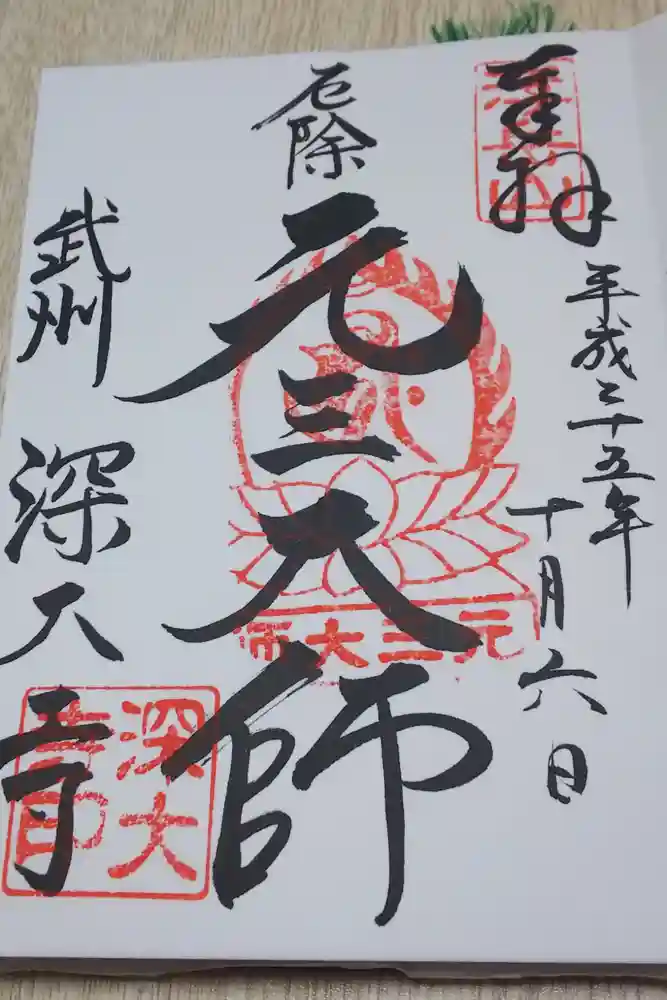 奉拝
浮岳山
平成二十五年
十月六日
厄除
元三大師
元三大師
武州
深大寺
深大
寺印